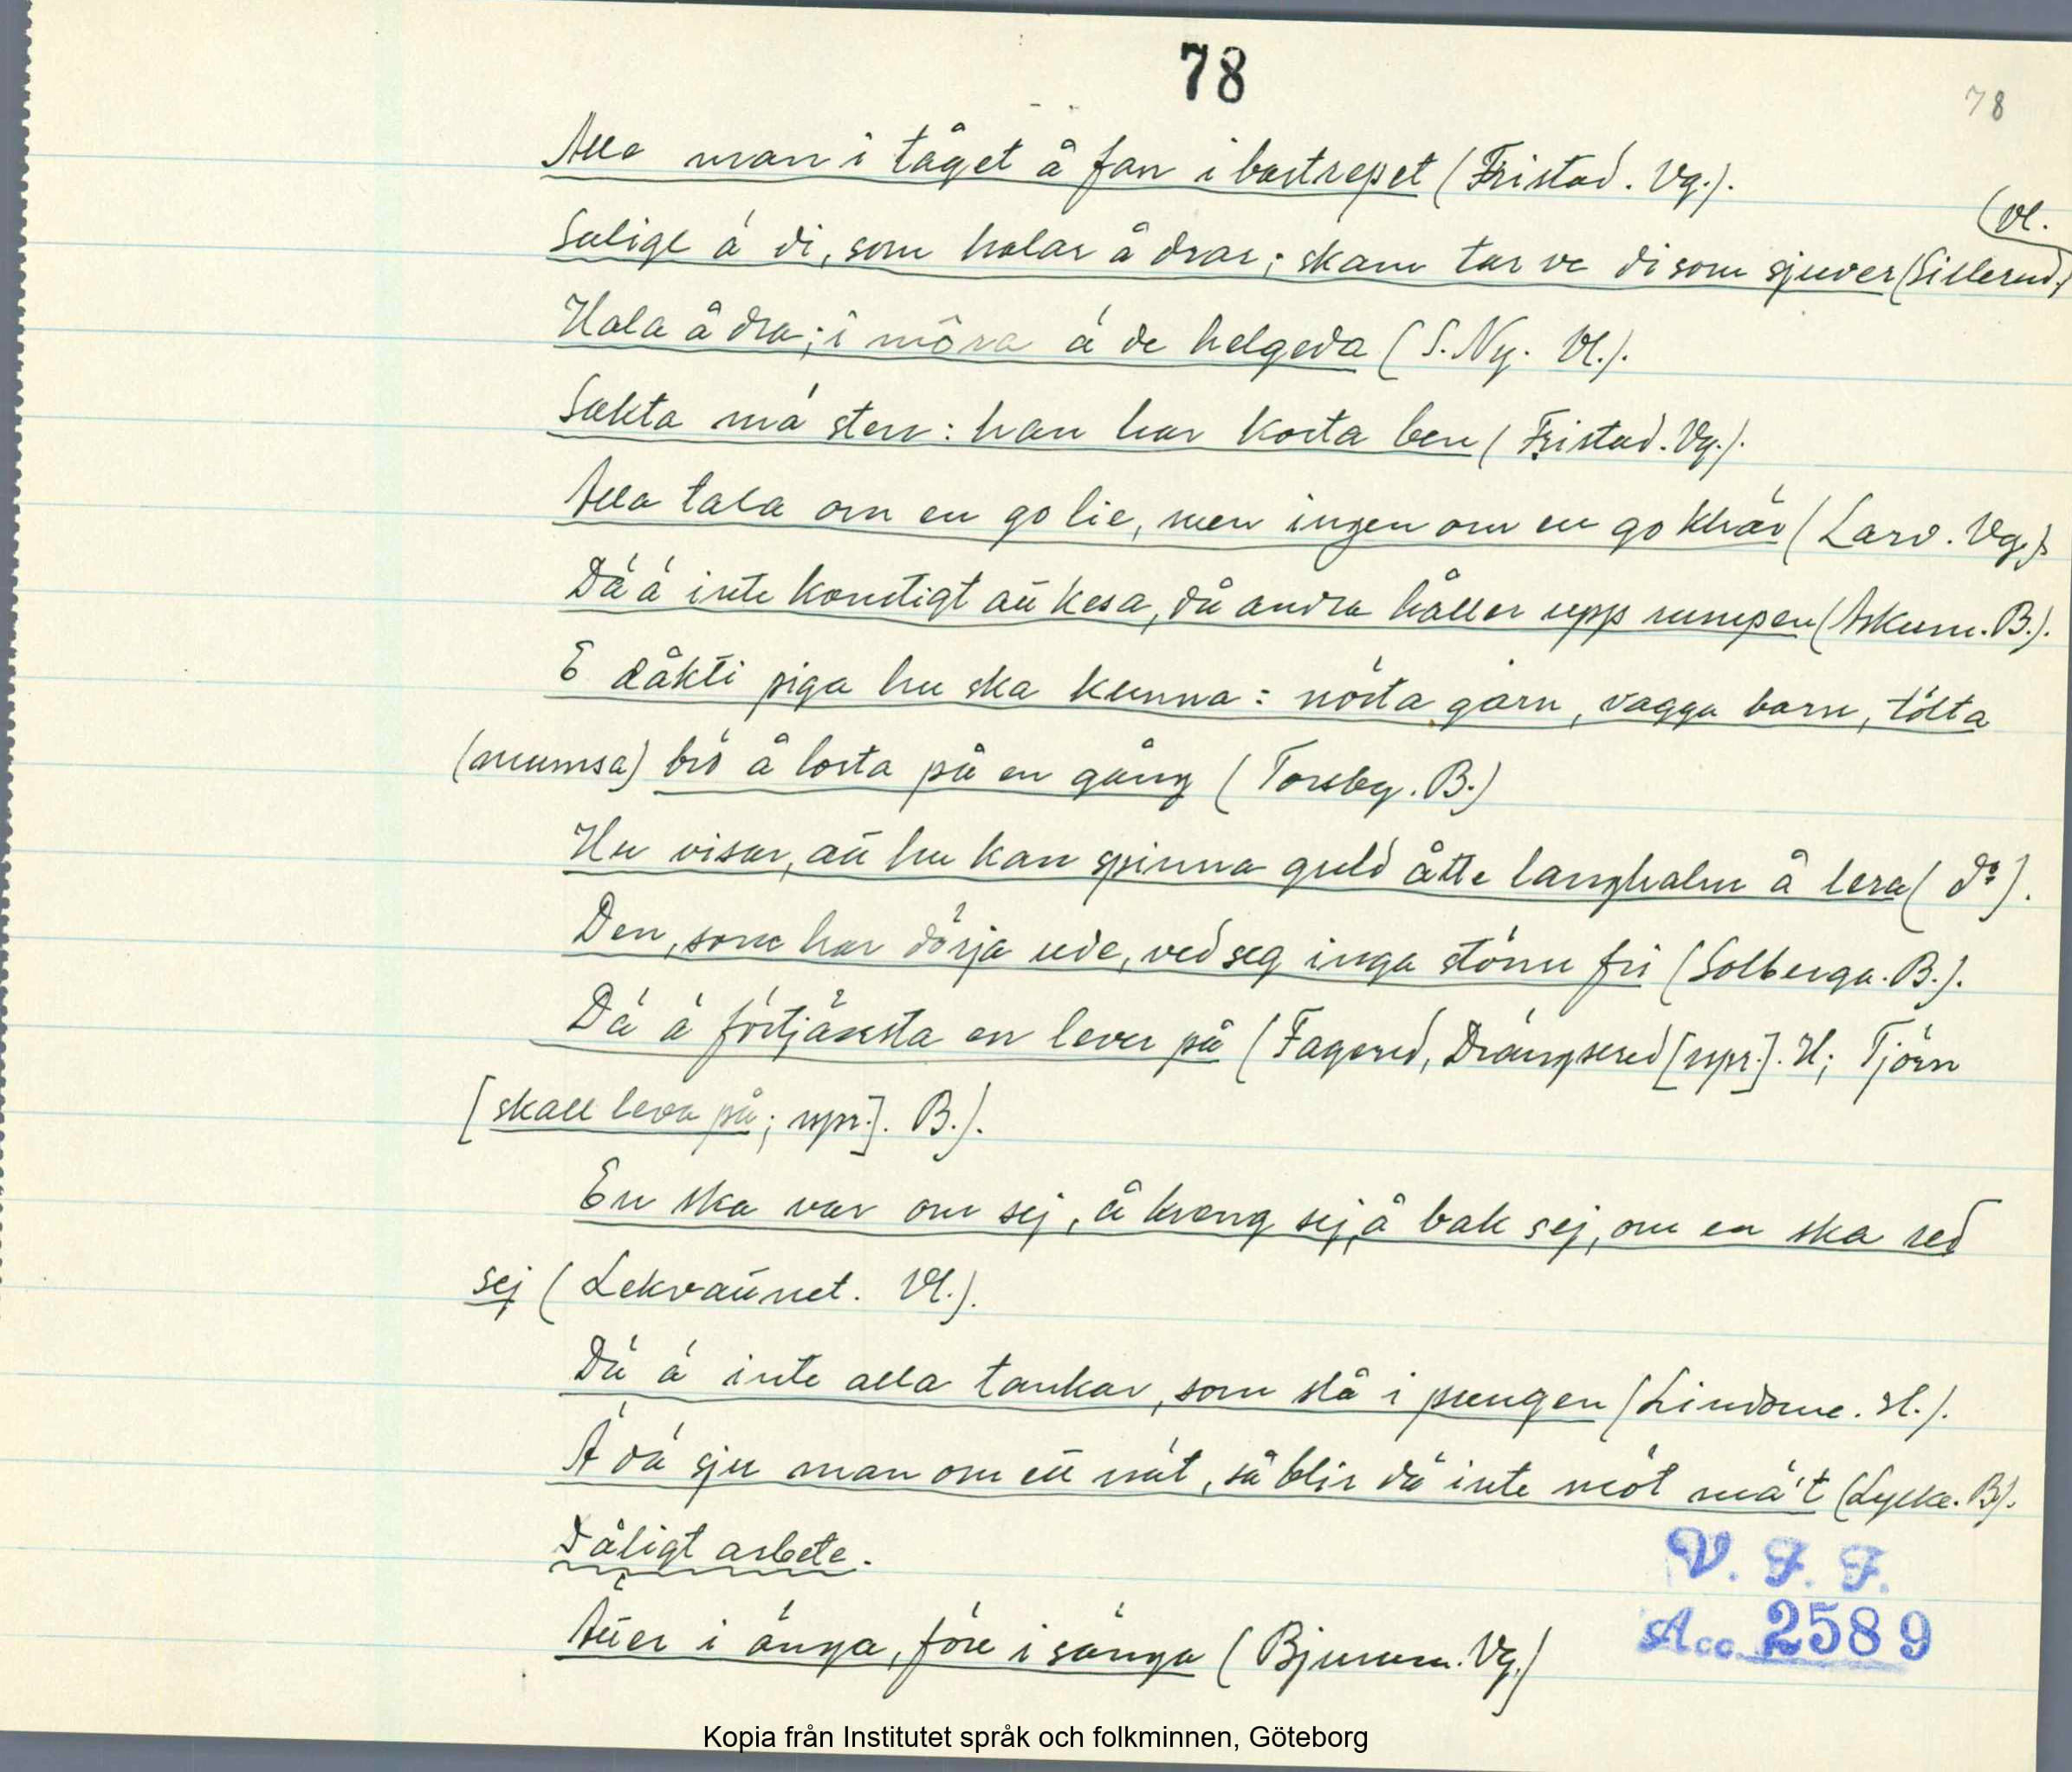 78
78
Alla man i tåget å fan i bastrepet (Fristad. Vg.).
(Vl.
Salige ä di, som halar å drar; skam tar ve di som sjuver (Sillerud.)
Hala å dra; i môra ä de helgeda (S. Ny. Vl.).
Sakta mä sten: han har korta ben (Fristad. Vg.).
Alla tala om en go lie, men ingen om en go khäv (Larv. Vg.).
Dä ä inte konstigt att kesa, då andra håller upp rumpen (Askum. B.).
E dåkti piga hu ska kunna: nösta garn, vagga barn, tölta
(mumsa) brö å lorta på en gång (Torsby. B.)
Hu visar, att hu kan spinna guld åtte langhalm å lera (do).
Den, som har dörja ude, ved seg inga stönn fri (Solberga. B.).
Dä ä förtjänsta en lever på (Fagered, Drängsered [spr.]. H; Tjörn
[skall leva på; spr.]. B.).
En ska var om sej, å kreng sej, å bak sej, om en ska red
sej (Lekvattnet. Vl.).
Dä ä inte alla tankar, som slå i pungen (Lindome. H.).
Ä dä sju man om ett nät, så blir dä inte nöt mä't (Lycke. B.).
Dåligt arbete.
Atter i änga, före i sänga (Bjurum. Vg.)
V. F. F.
Acc. 2589
Kopia från Institutet språk och folkminnen, Göteborg